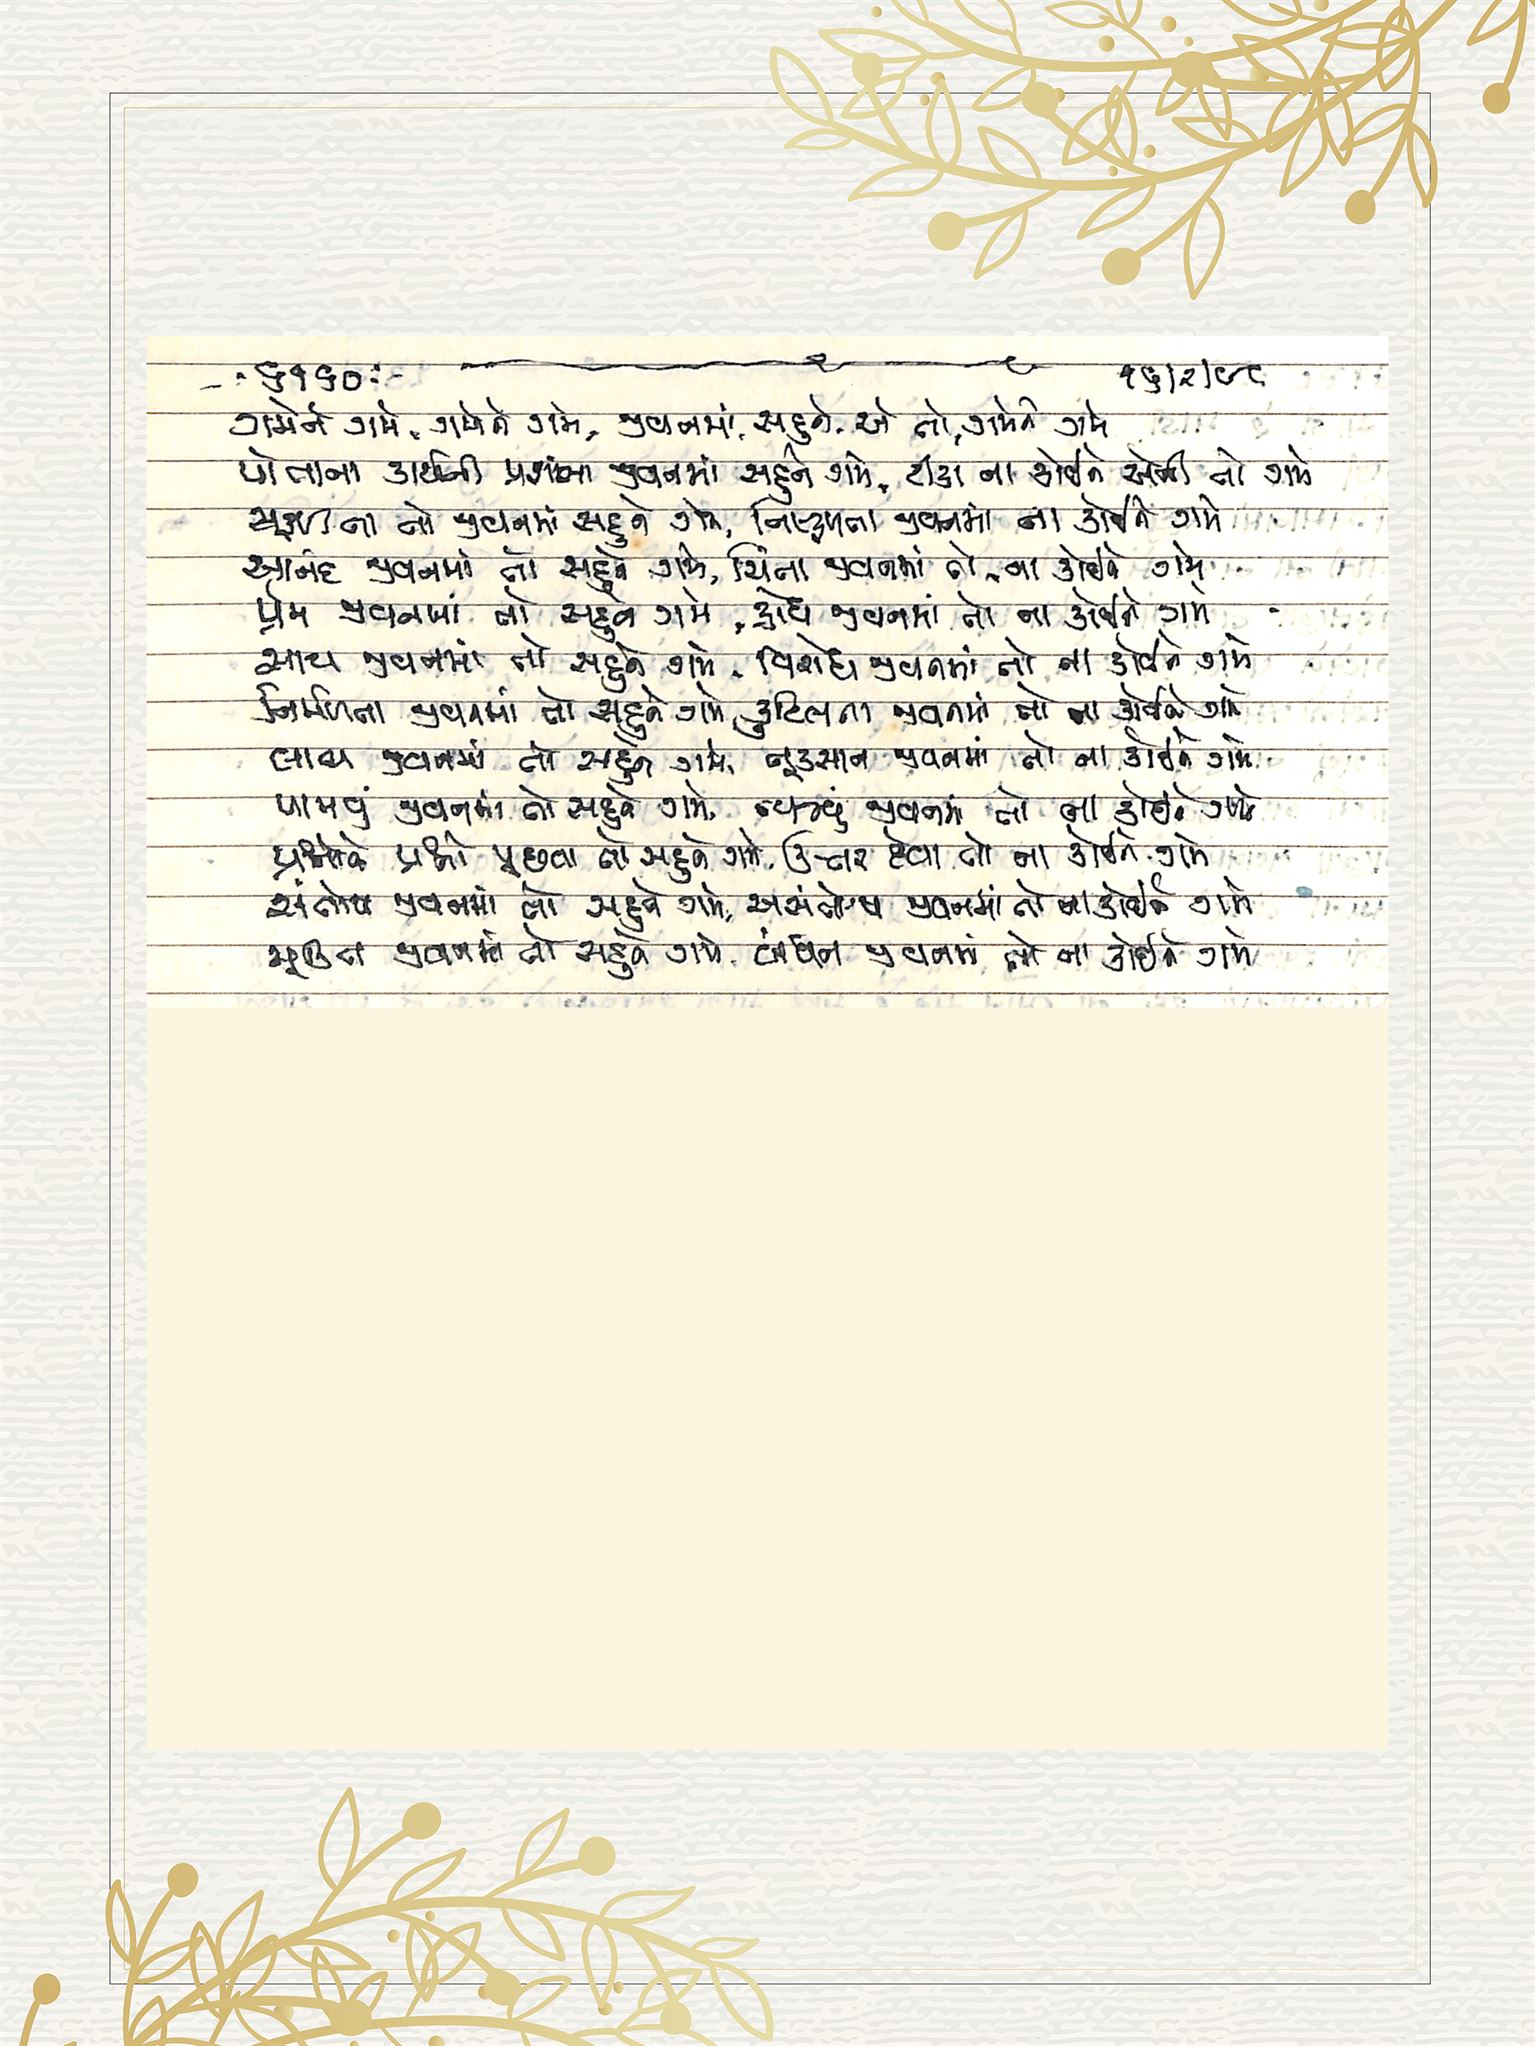 -: ૬૧૬૦ :- ૧૬/૨/૯૮
ગમેને ગમે, ગમેને ગમે, જીવનમાં, સહુને, એ તો, ગમેને ગમે
પોતાના કાર્યની પ્રશંસા જીવનમાં સહુને ગમે, ટીકા ના કોઈને એની તો ગમે
સફળતા તો જીવનમાં સહુને ગમે, નિષ્ફળતા જીવનમાં ના કોઈને ગમે
આનંદ જીવનમાં તો સહુને ગમે, ચિંતા જીવનમાં તો, ના કોઈને ગમે
પ્રેમ જીવનમાં તો સહુને ગમે, ક્રોધ જીવનમાં તો ના કોઈને ગમે
સાથ જીવનમાં તો સહુને ગમે, વિરોધ જીવનમાં તો ના કોઈને ગમે
નિર્મળતા જીવનમાં તો સહુને ગમે, કુટિલતા જીવનમાં તો ના કોઈને ગમે
લાભ જીવનમાં તો સહુને ગમે, નુકસાન જીવનમાં તો ના કોઈને ગમે
પામવું જીવનમાં તો સહુને ગમે, ત્યજવું જીવનમાં તો ના કોઈને ગમે
પ્રશ્નો પૂછવા તો સહુને ગમે, ઉત્તર દેવા તો ના કોઈને ગમે
સંતોષ જીવનમાં તો સહુને ગમે, અસંતોષ જીવનમાં તો ના કોઈને ગમે
મુક્તિ જીવનમાં તો સહુને ગમે, બંધન જીવનમાં તો ના કોઈને ગમે